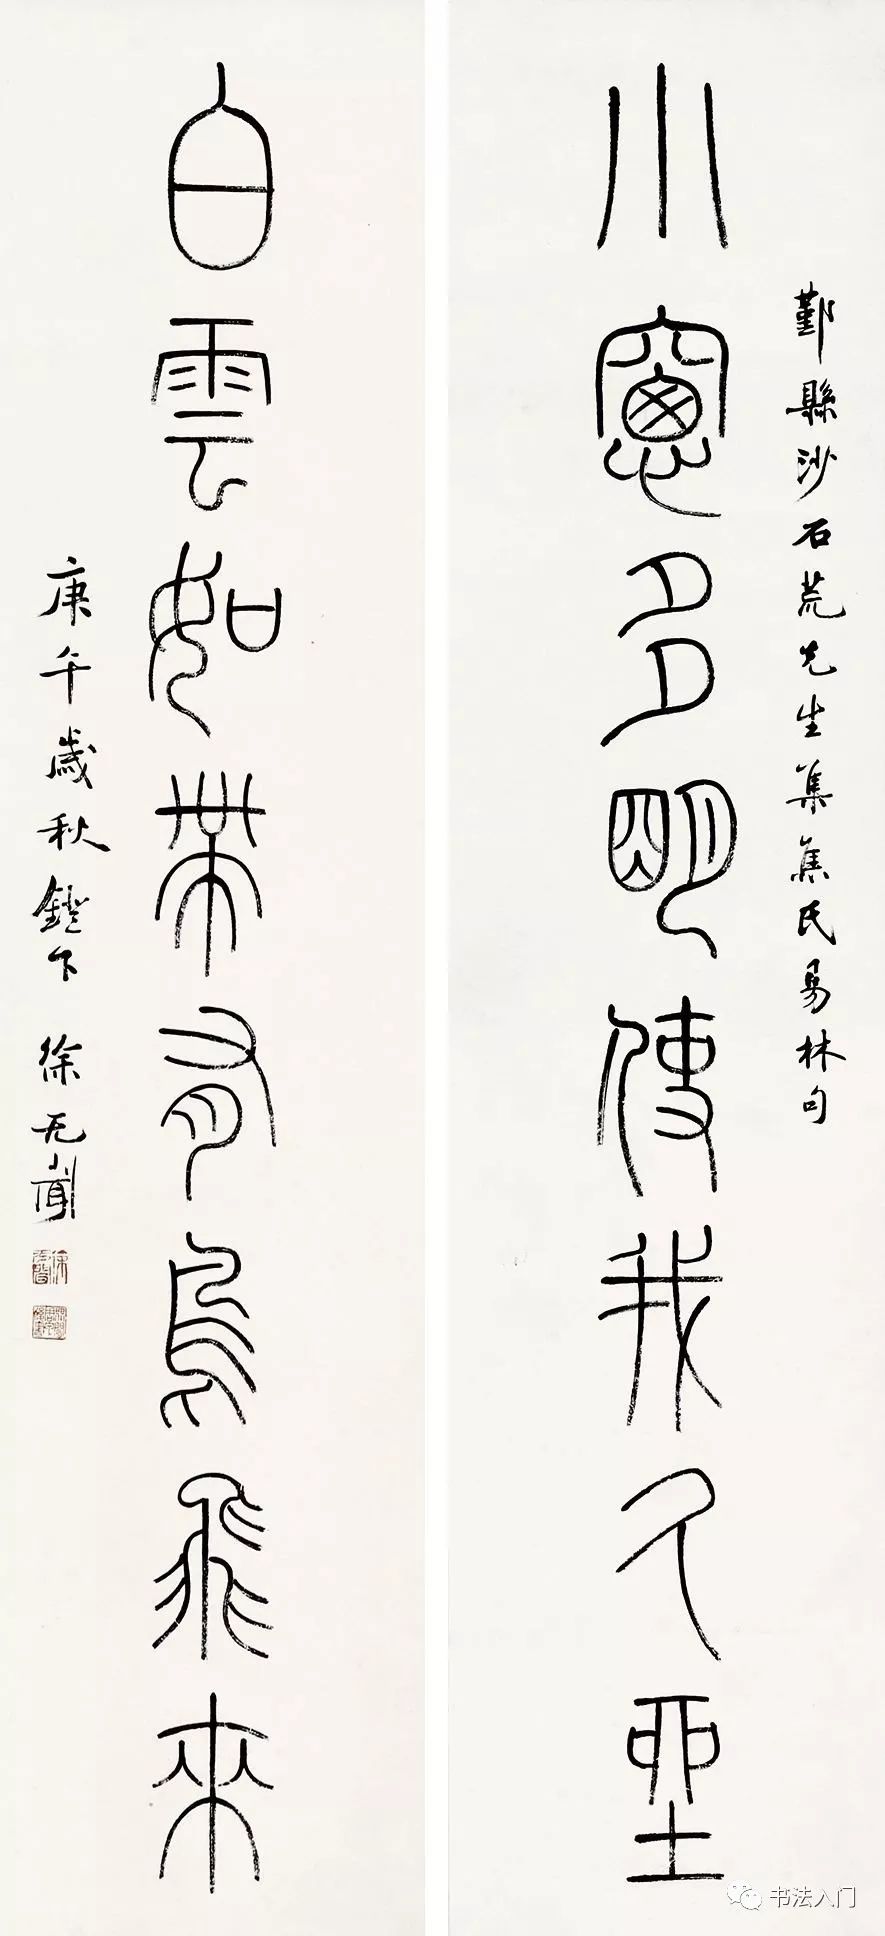 鄞縣沙石荒先生集焦氏易林句
小窗多明使我久坐
白雲如帶有鳥飛來
庚午歲秋鐙下 徐无聞
书法入门